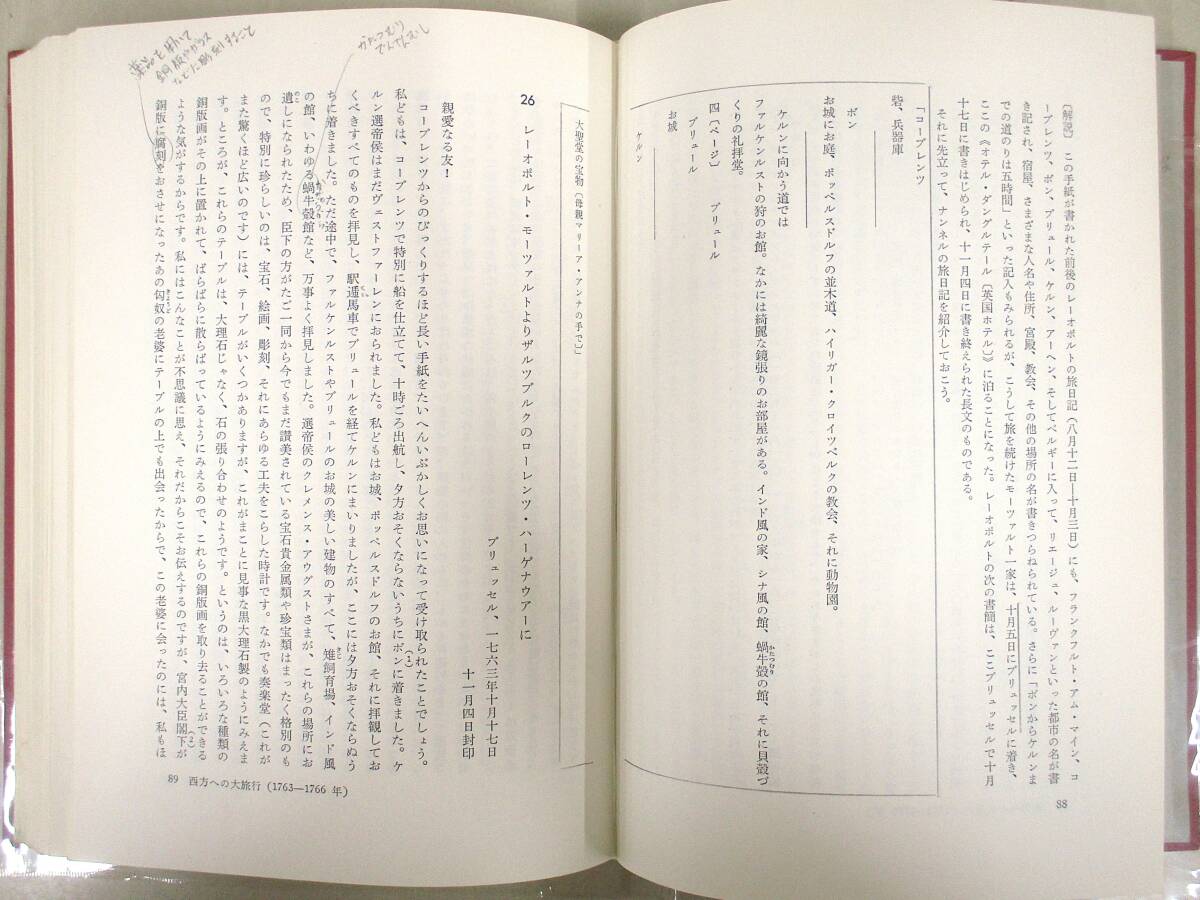 〔解説〕 この手紙が書かれた前後のレーオポルトの旅日記（八月十二日―十月三日）にも、フランクフルト・アム・マイン、コ
ーブレンツ、ボン、ブリュール、ケルン、アーヘン、そしてベルギーに入って、リエージュ、ルーヴァンといった都市の名が書
き記され、宿屋、さまざまな人名や住所、宮殿、教会、その他の場所の名が書きつらねられている。さらに「ボンからケルンま
での道のりは五時間」といった記入もみられるが、こうして旅を続けたモーツァルト一家は、十月五日にブリュッセルに着き、
ここの《オテル・ダングルテール〔英国ホテル〕》に泊ることになった。レーオポルトの次の書簡は、ここブリュッセルで十月
十七日に書きはじめられ、十一月四日に書き終えられた長文のものである。
それに先立って、ナンネルの旅日記を紹介しておこう。
「コーブレンツ
砦、兵器庫
ボン
お城にお庭、ポッペルスドルフの並木道、ハイリガー・クロイツベルクの教会、それに動物園。
ケルンに向かう道では
ファルケンルストの狩のお館。なかには綺麗な鏡張りのお部屋がある。インド風の家、シナ風の館、蝸牛殻の館、それに貝殻づ
かたつむり
くりの礼拝堂。
四〔ページ〕 ブリュール
ブリュール
お城
ケルン
大聖堂の宝物〔母親マリーア・アンナの手で〕」
88
26 レーオポルト・モーツァルトよりザルツブルクのローレンツ・ハーゲナウアーに
ブリュッセル、一七六三年十月十七日
十一月四日封印
親愛なる友！
コーブレンツからのびっくりするほど長い手紙をたいへんいぶかしくお思いになって受け取られたことでしょう。
私どもは、コーブレンツで特別に船を仕立てて、十時ごろ出航し、夕方おそくならないうちにボンに着きました。ケ
ルン選帝侯はまだヴェストファーレンにおられました。私どもはお城、ポッペルスドルフのお館、それに拝観してお
くべきすべてのものを拝見し、駅逓馬車でブリュールを経てケルンにまいりましたが、ここには夕方おそくならぬう
ちに着きました。ただ途中で、ファルケンルストやブリュールのお城の美しい建物のすべて、雉飼育場、インド風
の館、いわゆる蝸牛殻館など、万事よく拝見しました。選帝侯のクレメンス・アウグストさまが、これらの場所にお
遺しになられたため、臣下の方がたご一同から今でもまだ讃美されている宝石貴金属類や珍宝類はまったく格別のも
ので、特別に珍らしいのは、宝石、絵画、彫刻、それにあらゆる工夫をこらした時計です。なかでも奏楽堂（これが
また驚くほど広いのです）には、テーブルがいくつかありますが、これがまことに見事な黒大理石製のようにみえま
す。ところが、これらのテーブルは、大理石じゃなく、石の張り合わせのようです。というのは、いろいろな種類の
銅版画がその上に置かれて、ばらばらに散らばっているようにみえるので、これらの銅版画を取り去ることができる
ような気がするからです。私にはこんなことが不思議に思え、それだからこそお伝えするのですが、宮内大臣閣下が
銅版に腐刻をおさせになったあの匈奴の老婆にテーブルの上でも出会ったからで、この老婆に会ったのには、私もほ
89 西方への大旅行（1763―1766 年）
かたつむり
でんでんむし
薬品を用いて
銅板やガラス
などに彫刻すること